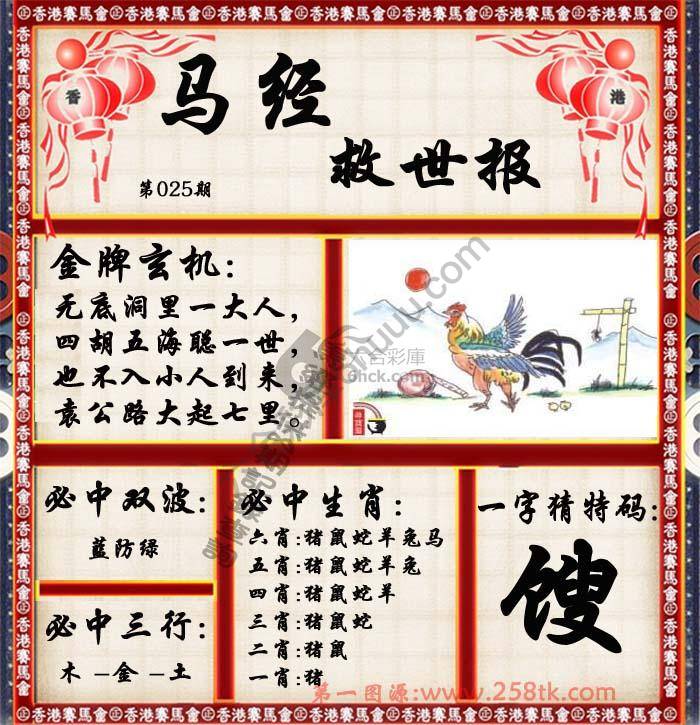 香
港
马经
救世报
第025期
金牌玄机：
无底洞里一大人，
四胡五海聪一世，
也不入小人到来，
袁公路大起七里。
六合彩庫
6hck.com
必中双波：
藍防绿
必中三行：
木 –金 –土
必中生肖：
六肖:猪鼠蛇羊兔马
五肖:猪鼠蛇羊兔
四肖:猪鼠蛇羊
三肖:猪鼠蛇
二肖:猪鼠
一肖:猪
一字猜特码：
馊
第一图源:www.258tk.com
香港賽馬會